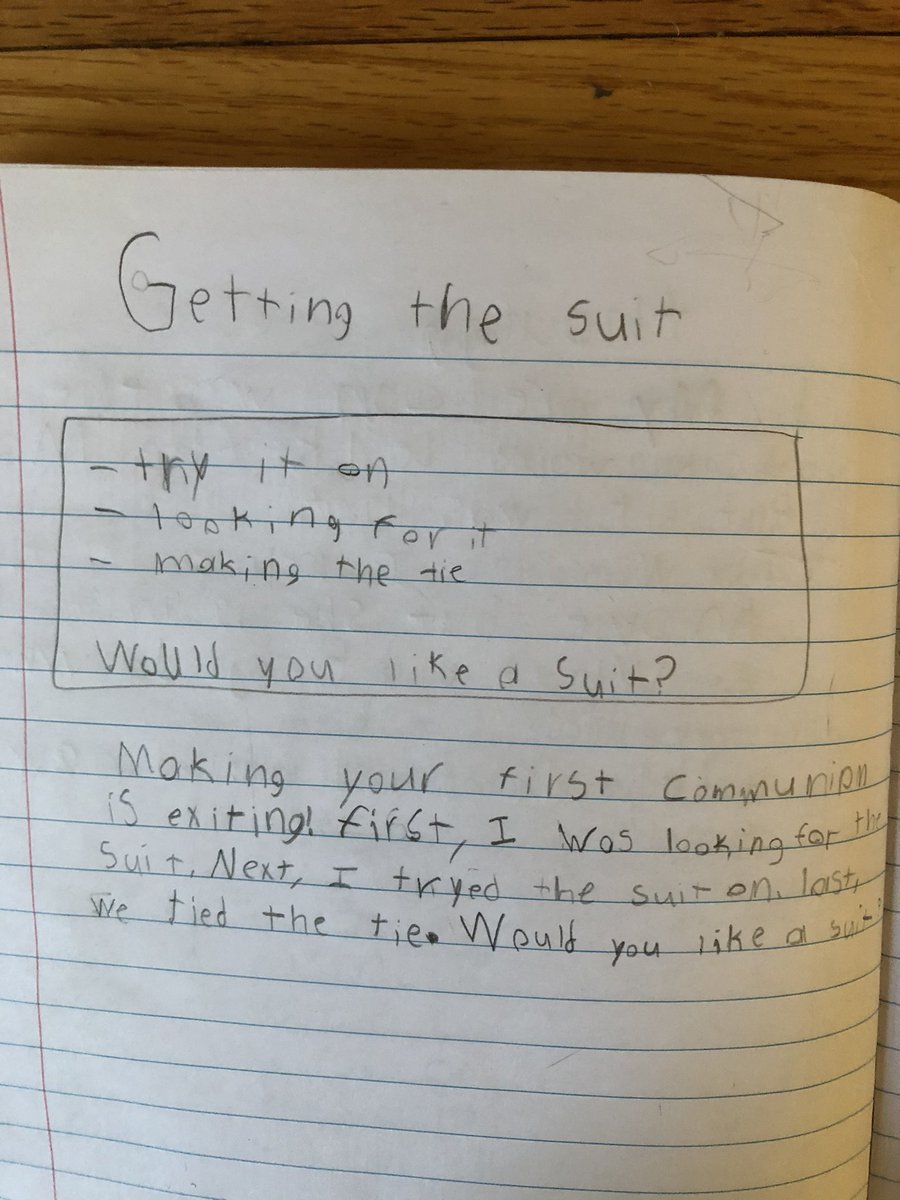 Getting the suit
- try it on
- looking for it
- making the tie
Would you like a suit?
Making your first communion
is exiting! first, I was looking for the
suit. Next, I tryed the suit on. last,
we tied the tie. Would you like a suit?